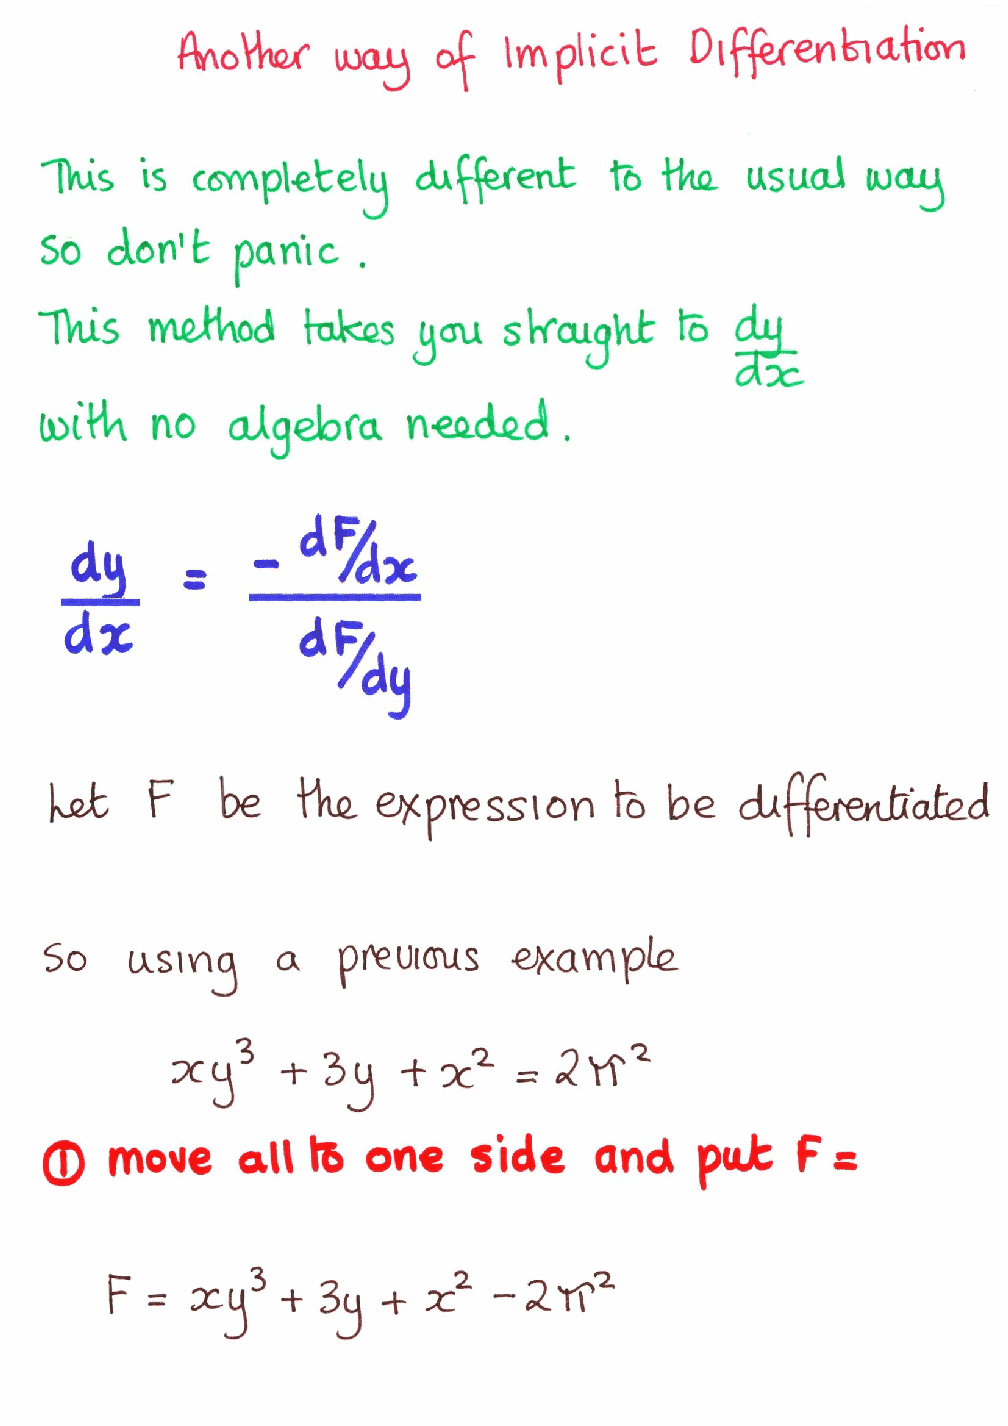 Another way of Implicit Differentiation
This is completely different to the usual way
so don't panic.
This method takes you straight to dy/dx
with no algebra needed.
dy/dx = - dF/dx / dF/dy
Let F be the expression to be differentiated
So using a previous example
xy³ + 3y + x² = 2π²
① move all to one side and put F =
F = xy³ + 3y + x² - 2π²